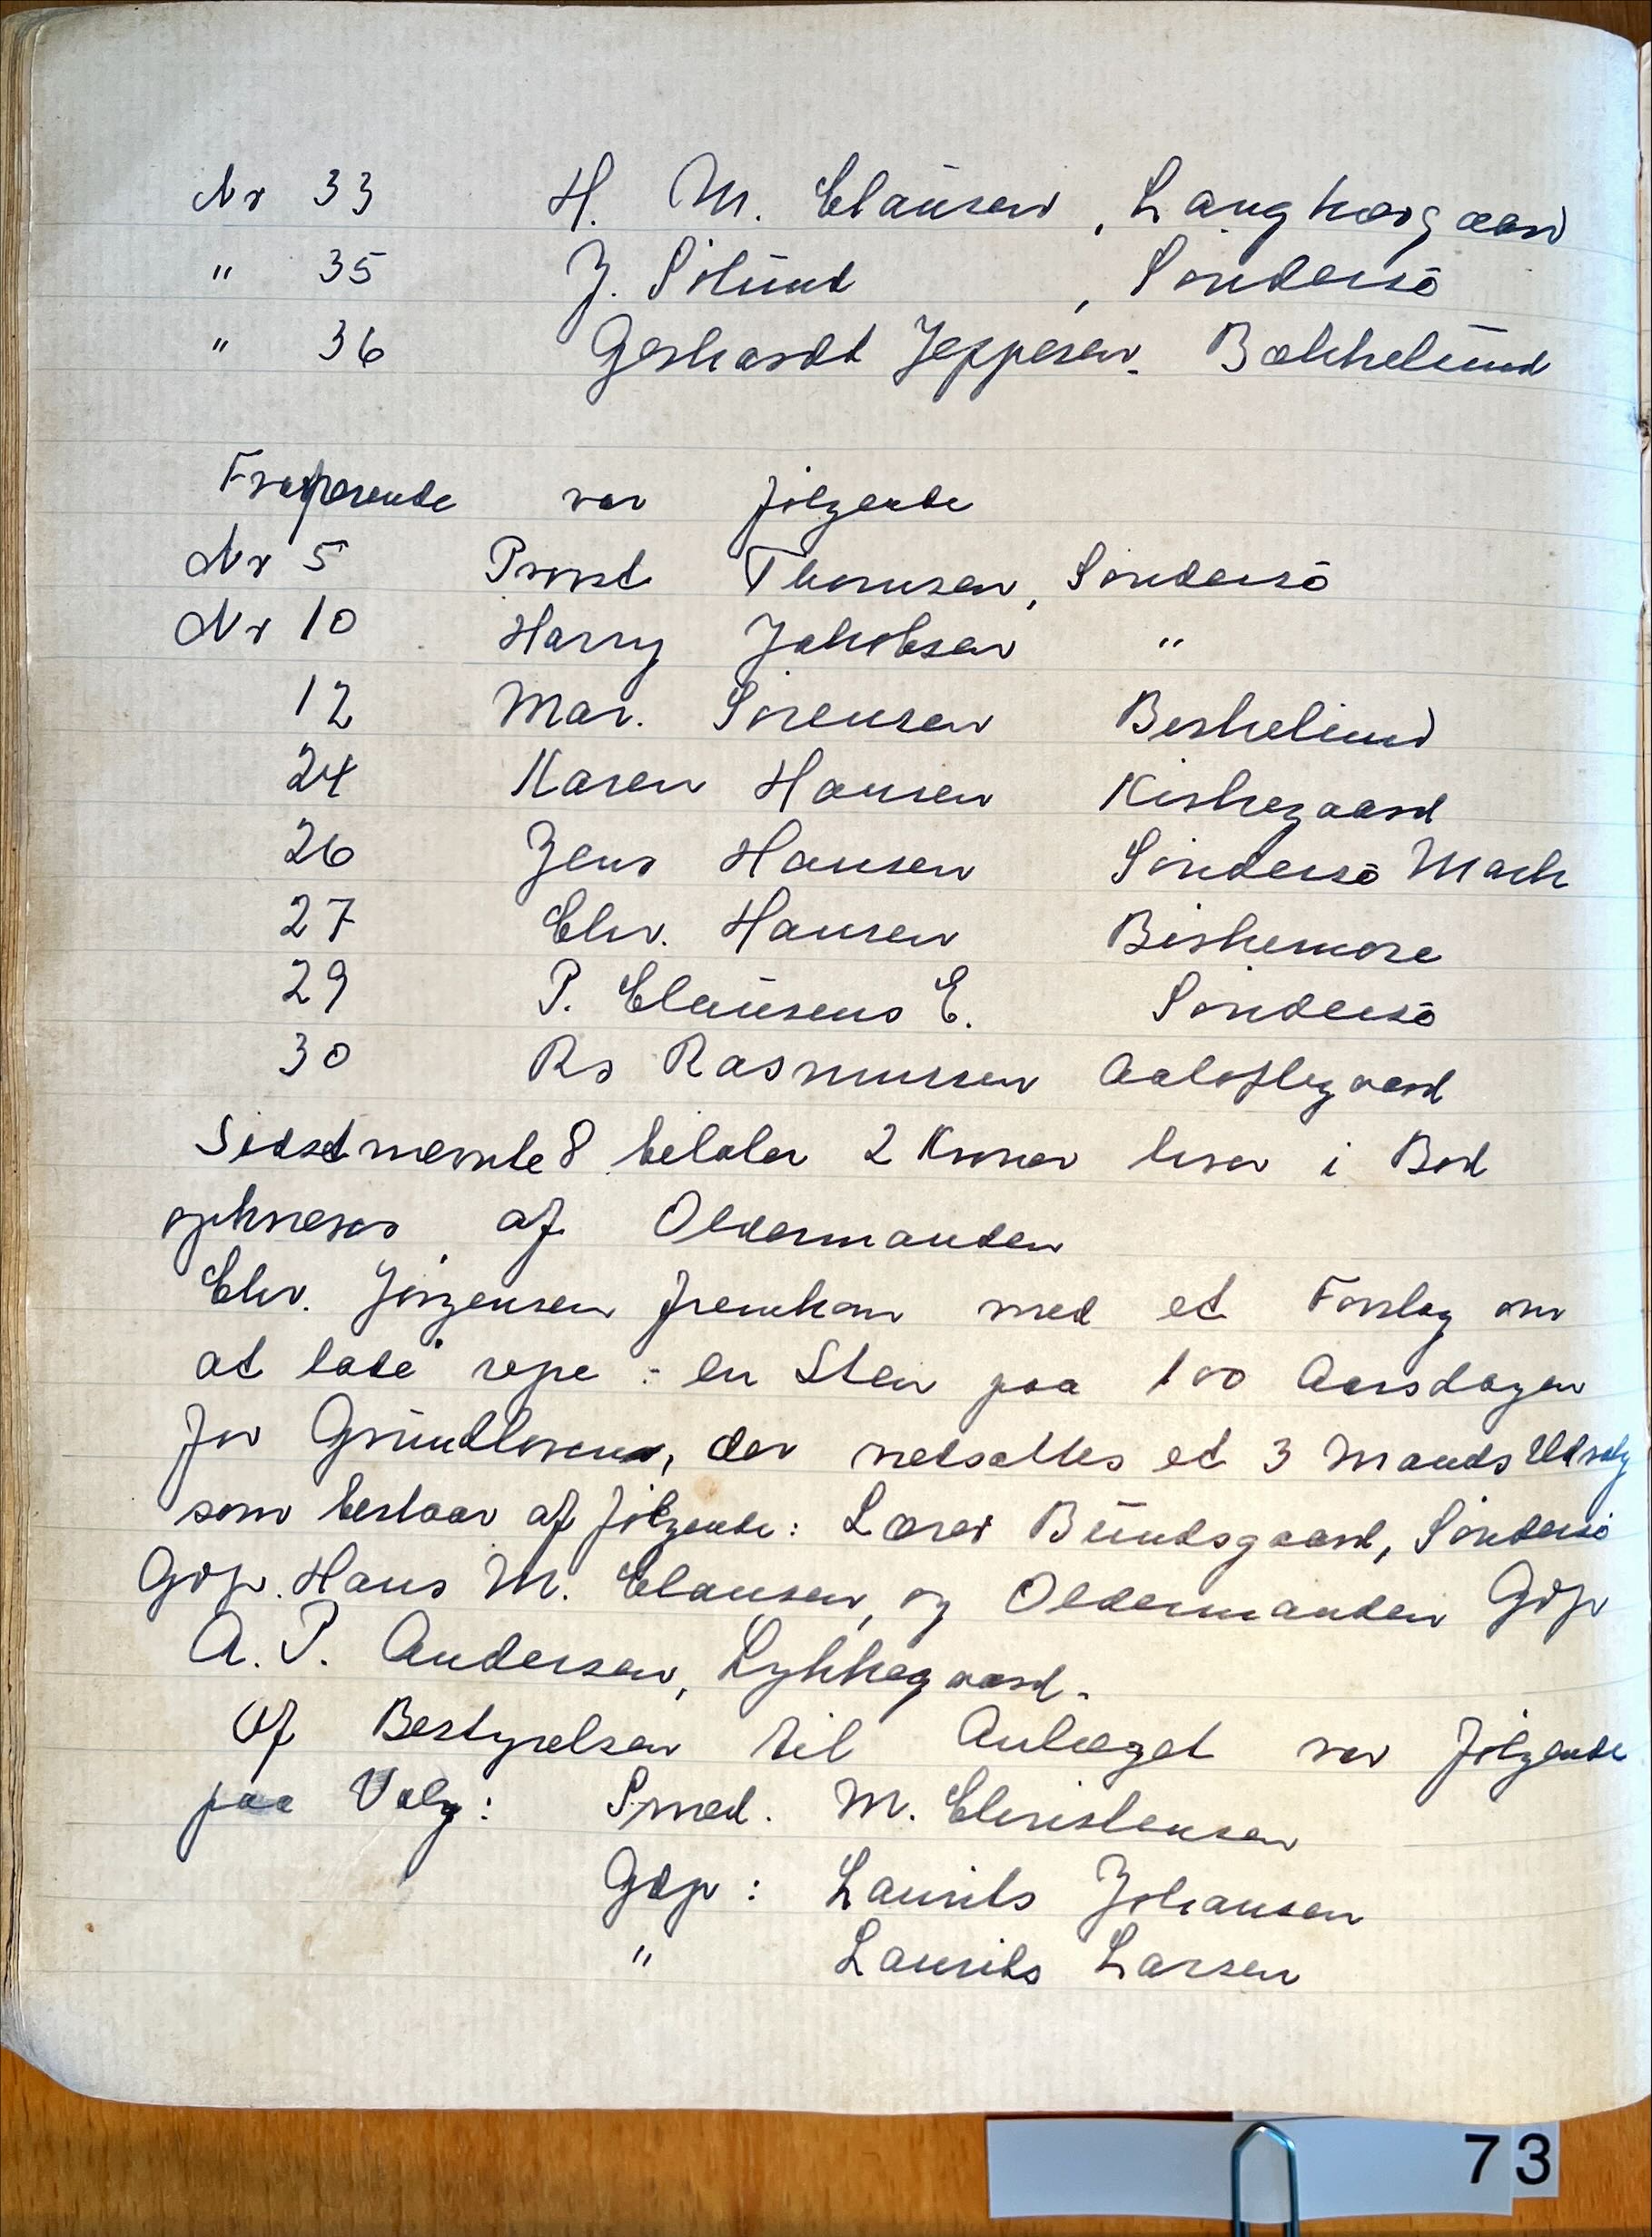 Nr 33 H. M. Clausen, Langkærgaard
" 35 J. Sölund, Söndersö
" 36 Gerhardt Jeppesen. Bækkelund
Fraværende var følgende
Nr 5 Provst Thomsen, Söndersö
Nr 10 Harry Jakobsen "
12 Mar. Sörensen Birkelund
24 Karen Hansen Kirkegaard
26 Jens Hansen Söndersö Mark
27 Chr. Hansen Birkemose
29 P. Clausens E. Söndersö
30 Rs Rasmussen Aaløkkegaard
Sidstnævnte 8 betaler 2 Kroner hver i Bod
opkræves af Oldermanden
Chr. Jörgensen fremkom med et Forslag om
at lade rejse en Sten paa 100 Aarsdagen
for Grundloven, der nedsattes et 3 Mands Udvalg
som bestaar af følgende: Lærer Bundsgaard, Söndersö
Gdjr. Hans M. Clausen, og Oldermanden Gdjr
A. P. Andersen, Lykkegaard.
Af Bestyrelsen til Anlæget var følgende
paa Valg: Smed. M. Christensen
Gdjr: Laurits Johansen
" Laurits Larsen
73